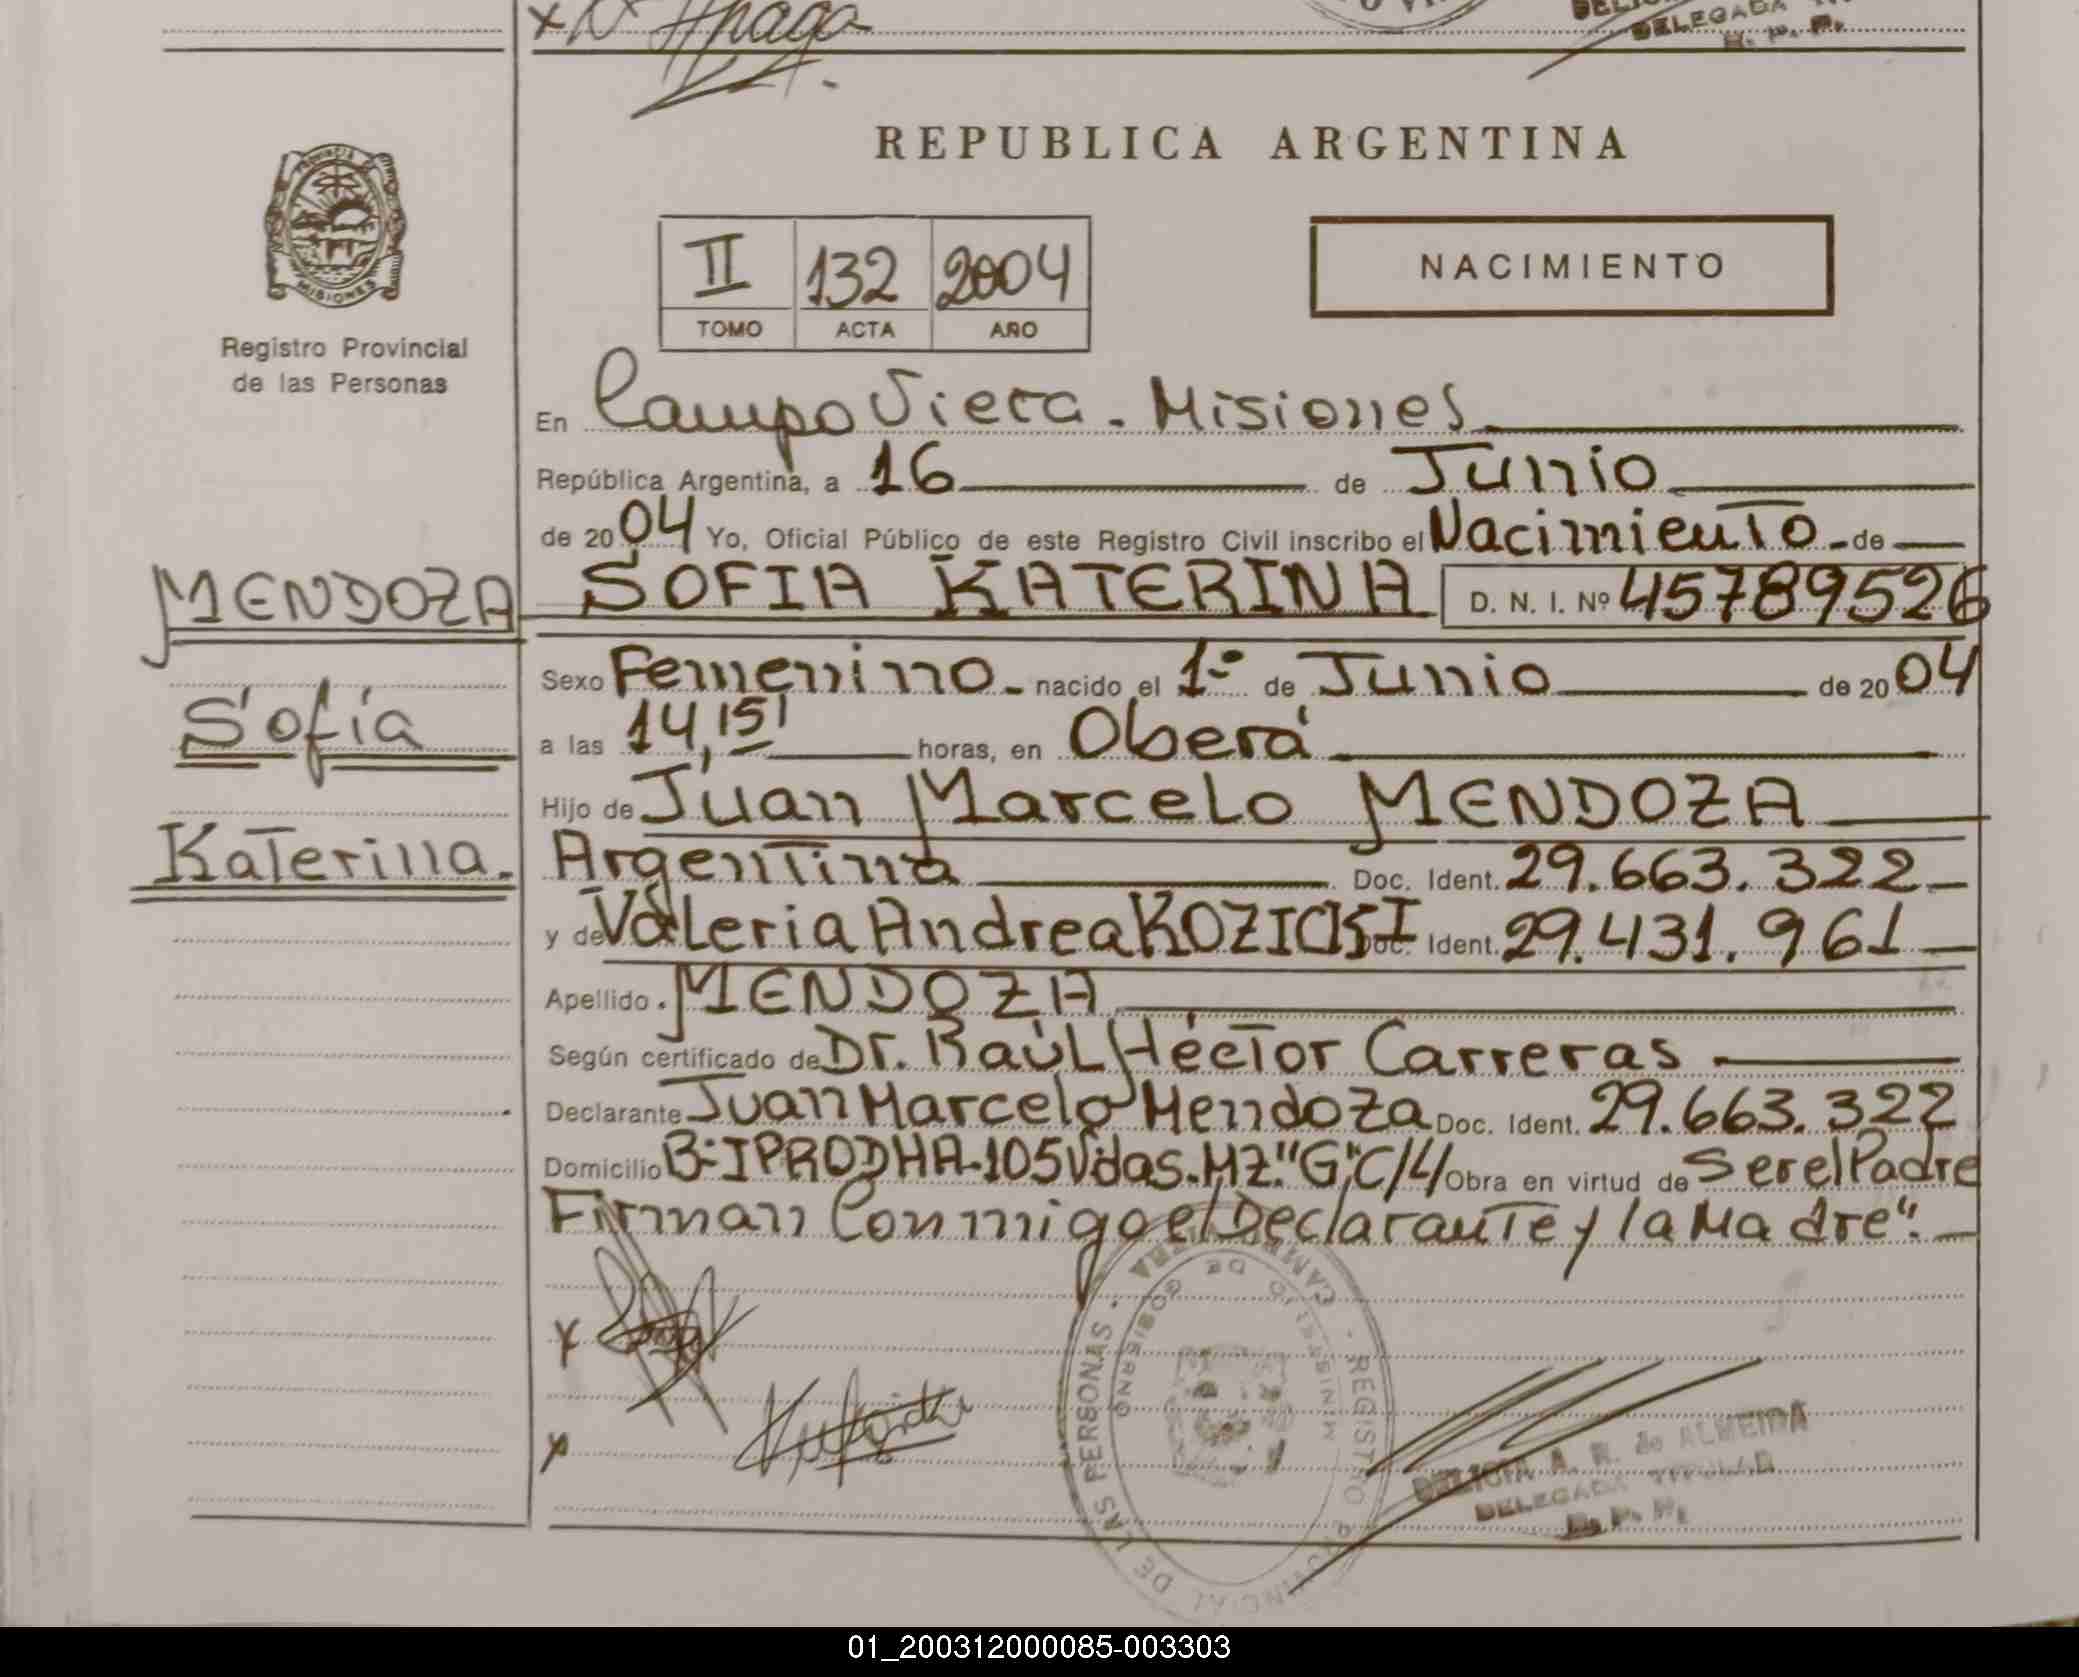 DELEGADA
R. P. P.
PROVINCIA
MISIONES
Registro Provincial
de las Personas
REPUBLICA ARGENTINA
II 132 2004
TOMO ACTA AÑO
NACIMIENTO
En Campo Viera - Misiones
República Argentina, a 16 de Junio
de 2004 Yo, Oficial Público de este Registro Civil inscribo el Nacimiento - de
MENDOZA SOFIA KATERINA D. N. I. Nº 45789526
Sexo Femenino - nacido el 1º de Junio de 2004
Sofía
a las 14,15' horas, en Oberá
Hijo de Juan Marcelo MENDOZA
Katerina. Argentina Doc. Ident. 29.663.322
y de Valeria Andrea KOZICKI Doc. Ident. 29.431.961
Apellido. MENDOZA
Según certificado de Dr. Raúl Héctor Carreras
Declarante Juan Marcelo Mendoza Doc. Ident. 29.663.322
Domicilio Bº IPRODHA-105 Vdas. MZ. "G" C/4 Obra en virtud de Ser el Padre
Firman Conmigo el Declarante y la Madre".
x
x
REGISTRO PROVINCIAL DE LAS PERSONAS
MINISTERIO DE GOBIERNO
DELICIA A. R. de ALMEIDA
DELEGADA TITULAR
R. P. P.
01_200312000085-003303